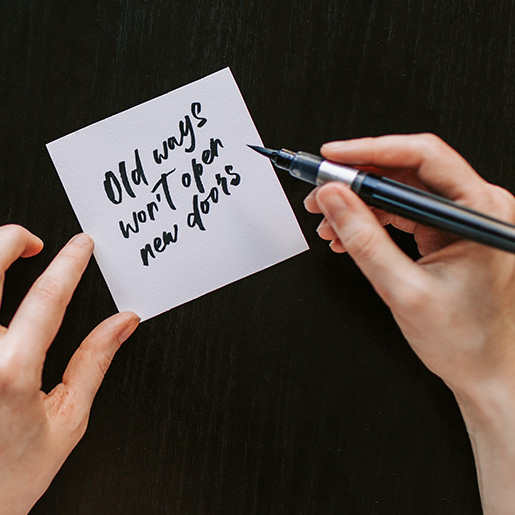 Old ways
won't open
new doors